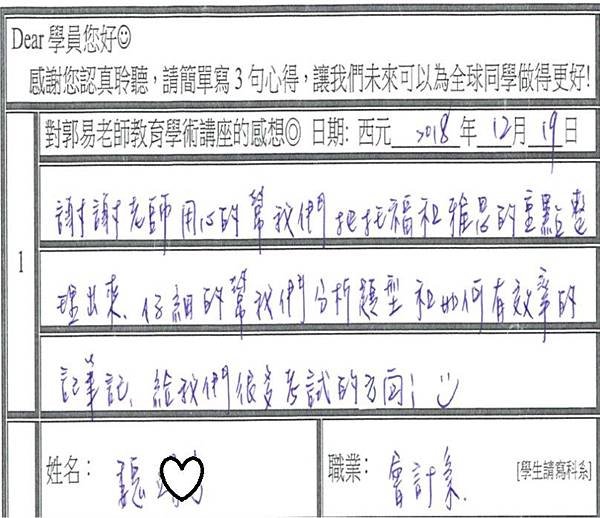 Dear 學員您好☺
感謝您認真聆聽，請簡單寫 3 句心得，讓我們未來可以為全球同學做得更好!
對郭易老師教育學術講座的感想◎ 日期: 西元 2018 年 12 月 19 日
1
謝謝老師用心的幫我們把托福和雅思的重點整
理出來、仔細的幫我們分析題型和如何有效率的
記筆記、給我們很多考試的方向! :)
姓名：
職業： 會計系. [學生請寫科系]